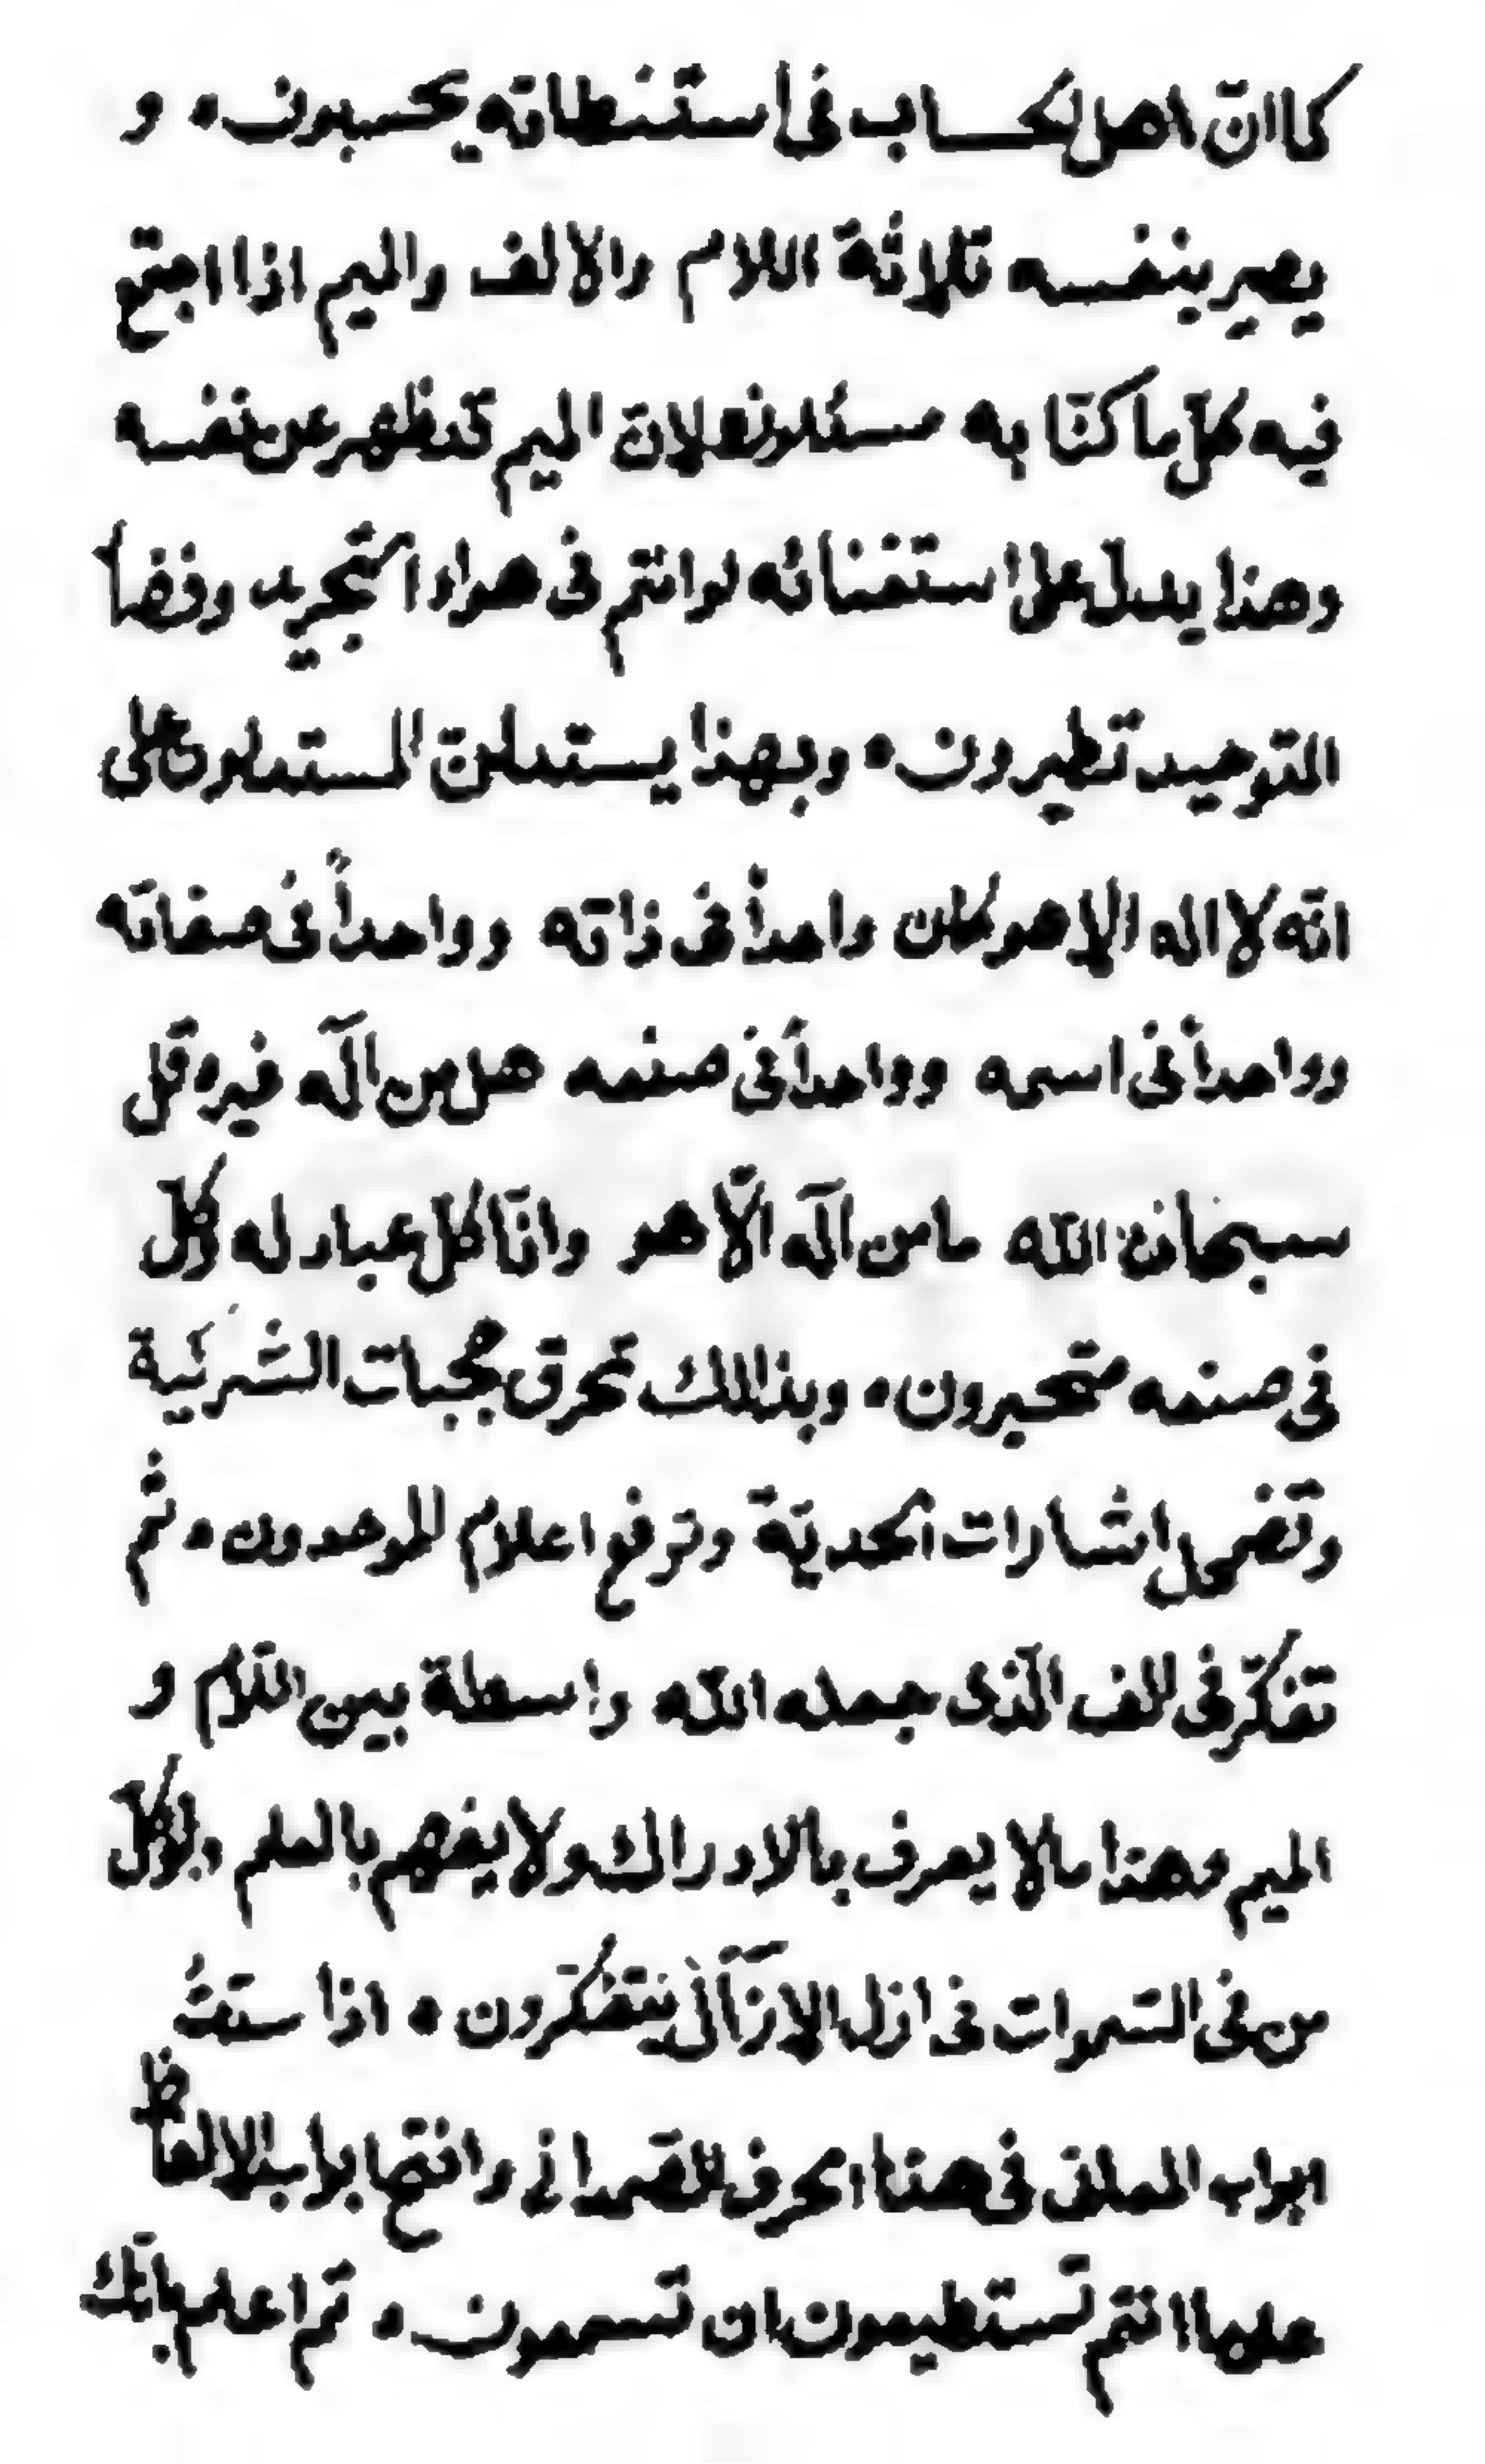 كما انّ اهل الحساب فى استنطاته يحسبون ه و
يصير بنفسه ثلاثة اللام والالف والميم اذا اجتمع
فيه كلّ ما كنّا به لانّ الميم قد ظهر عن نفسه
وهذا يدلّ على استغنائه لو انتم فى هواء التجريد وفضاء
التوحيد تطيرون ه وبهذا يستدلنّ المستدلون على
انّه لا اله الا هو كان واحداً فى ذاته وواحداً فى صفاته
وواحداً فى اسمه وواحداً فى صنعه هل من اله غيره قل
سبحان الله ما من اله الّا هو وانّا كل عباد له وكلّ
فى صنعه متحيرون ه وبذلك تحرق حجبات الشركية
وتضمحل اشارات الحديّة وترفع اعلام الموحدون ه ثم
تفكّر فى الف الّذى جعله الله واسطة بين اللام و
الميم وهذا ما لا يعرف بالادراك ولا يفهم بالعلم ولو كلّ
من فى السّموات فى ازل الازآل يتفكّرون ه اذا ستّت
ابواب المعلق فى هذا الحرف الصّمدانى وانفتح ابواب الالفاظ
عليها انتم تستطيعون ان تسمعون ه ثم اعلم بانّك